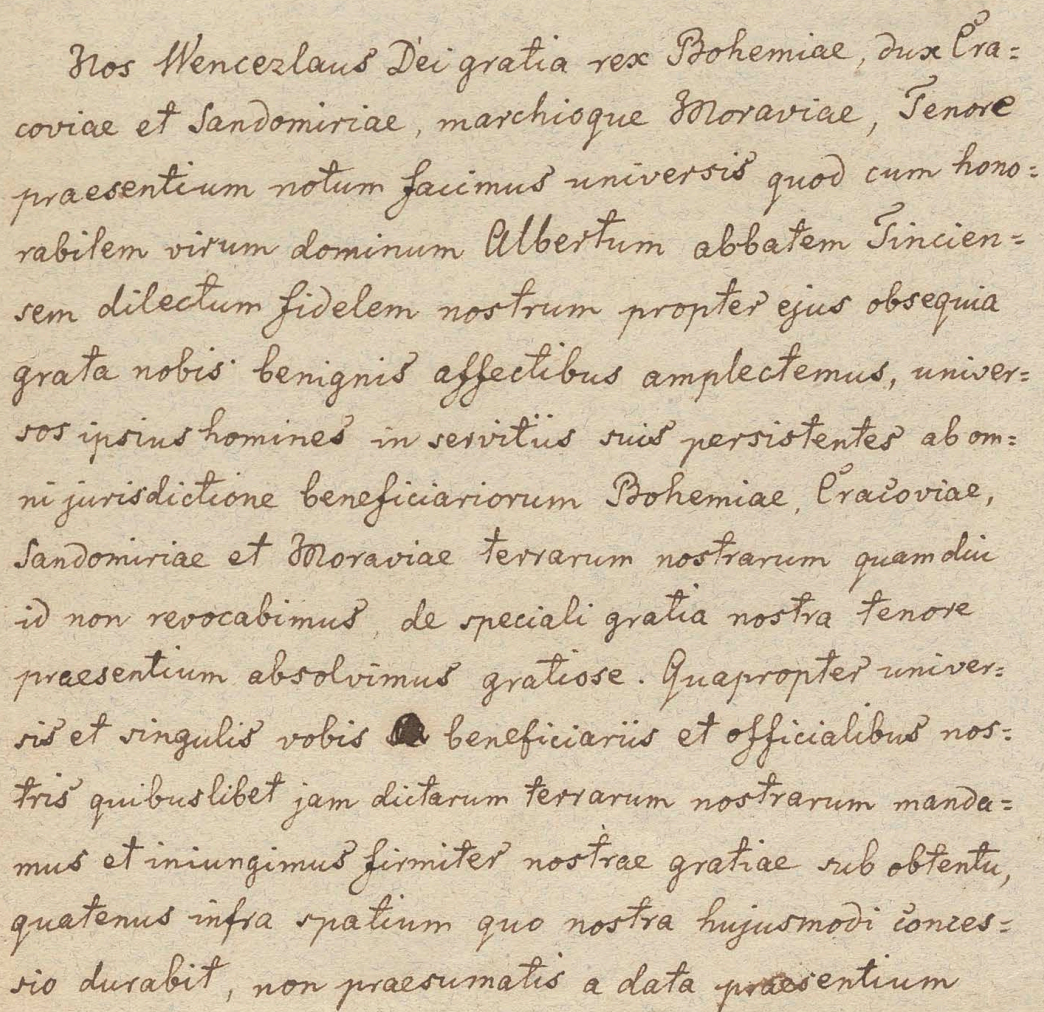 Nos Wencezlaus Dei gratia rex Bohemiae, dux Cra=
coviae et Sandomiriae, marchioque Moraviae, Tenore
praesentium notum facimus universis quod cum hono=
rabilem virum dominum Albertum abbatem Tincien=
sem dilectum fidelem nostrum propter ejus obsequia
grata nobis benignis affectibus amplectemus, univer=
sos ipsius homines in servitiis suis persistentes ab om=
ni jurisdictione beneficiariorum Bohemiae, Cracoviae,
Sandomiriae et Moraviae terrarum nostrarum quamdiu
id non revocabimus, de speciali gratia nostra tenore
praesentium absolvimus gratiose. Quapropter univer=
sis et singulis vobis beneficiariis et officialibus nos=
tris quibuslibet jam dictarum terrarum nostrarum manda=
mus et iniungimus firmiter nostrae gratiae sub obtentu,
quatenus infra spatium quo nostra hujusmodi conces=
sio durabit, non praesumatis a data praesentium